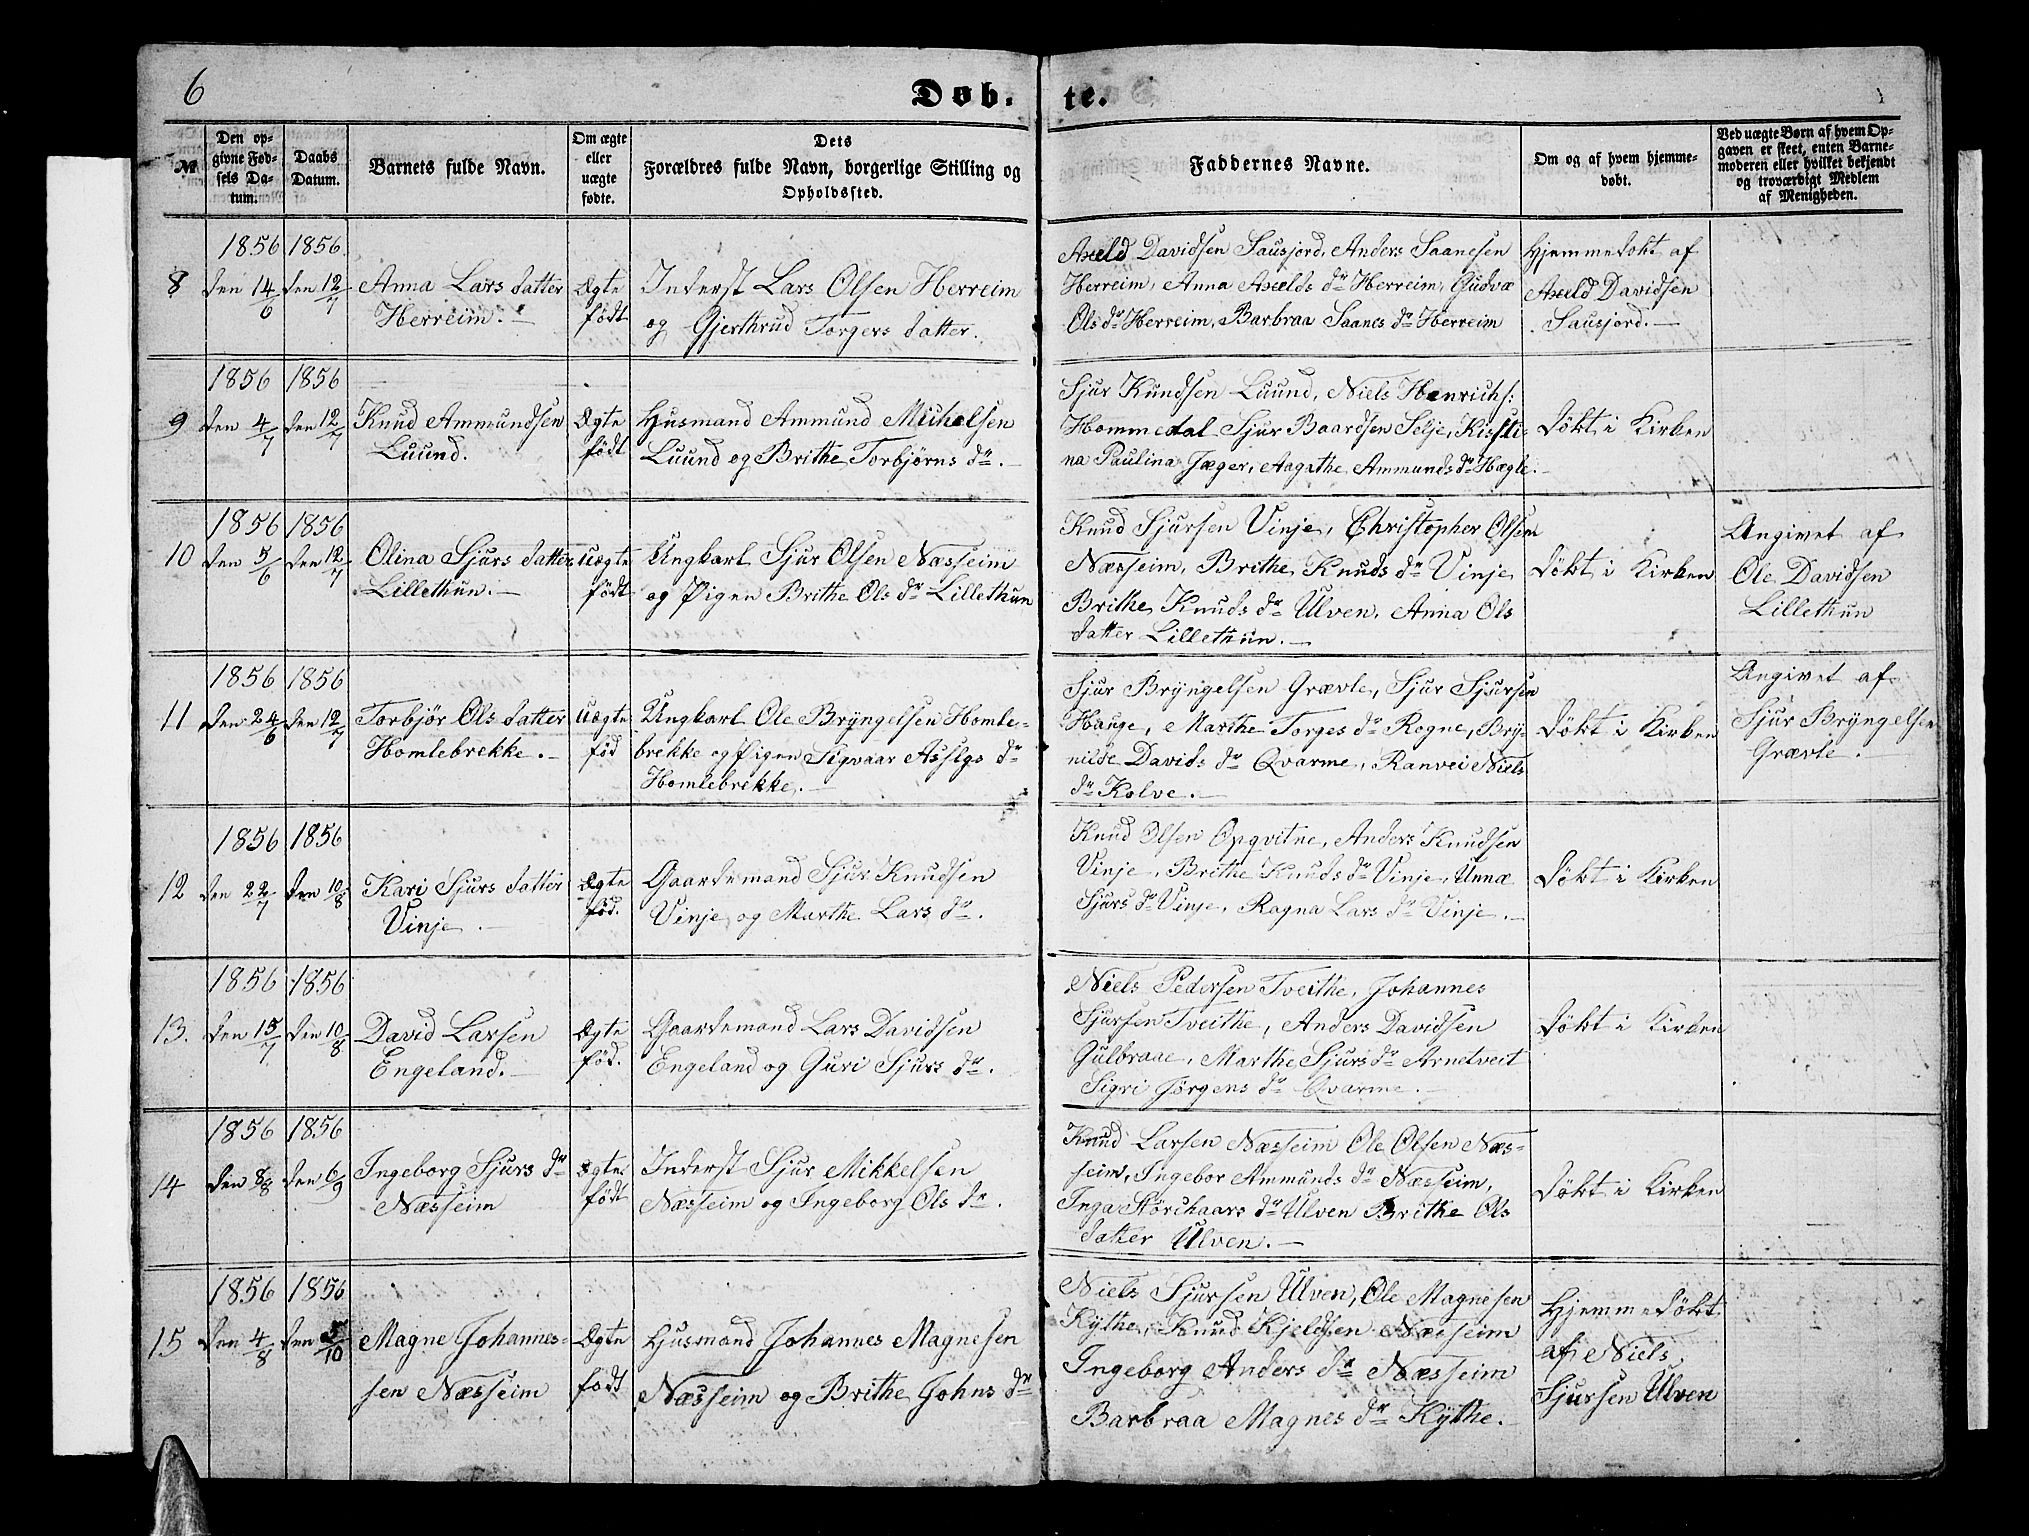 6
Døb.
te.
№
Den op-
givne Fød-
sels Da-
tum.
Daabs
Datum.
Barnets fulde Navn.
Om ægte
eller
uægte
fødte.
Dets
Forældres fulde Navn, borgerlige Stilling og
Opholdssted.
Faddernes Navne.
Om og af hvem hjemme-
døbt.
Ved uægte Børn af hvem Op-
gaven er skeet, enten Barne-
moderen eller hvilket bekjendt
og troværdigt Medlem
af Menigheden.
8
1856
den 14/6
1856
den 12/7
Anna Lars datter
Herreim.
Ægte
født
Inderst Lars Olsen Herreim
og Gjerthrud Torgers datter.
Axeld Davidsen Sausjord, Anders Saanesen
Herreim, Anna Axelds dr Herreim, Gudvæ
Ols dr Herreim, Barbraa Saanes dr Herreim
Hjemmedøkt af
Axeld Davidsen
Sausjord.
9
1856
den 4/7
1856
den 12/7
Knud Ammundsen
Luund.
Ægte
født
Husmand Ammund Michelsen
Luund og Brithe Torbjørns dr.
Sjur Knudsen Luund, Niels Henrichs:
Hommedal Sjur Baardsen Selje, Kissti-
na Paulina Jæger, Aagathe Ammunds dr Hægle.
døkt i Kirken
10
1856
den 5/6
1856
den 12/7
Olina Sjurs datter
Lillethun.
uægte
født
Ungkarl Sjur Olsen Næsseim
og Pigen Brithe Ols dr Lillethun
Knud Sjursen Vinje, Christopher Olsen
Næsseim, Brithe Knuds dr Vinje
Brithe Knuds dr Ulven, Anna Ols
datter Lillethun.
døkt i Kirken
Angivet af
Ole Davidsen
Lillethun
11
1856
den 24/6
1856
den 12/7
Torbjør Ols datter
Homlebrekke.
uægte
fød
Ungkarl Ole Bryngelsen Homle-
brekke og Pigen Sigvaar Asslgs dr
Homlebrekke.
Sjur Bryngelsen Grævle, Sjur Sjursen
Hauge, Marthe Torges dr Rogne, Bry-
nilde Davids dr Qvarme, Ranvei Niels
dr Kolve.
døkt i Kirken
Angivet af
Sjur Bryngelsen
Grævle.
12
1856
den 22/7
1856
den 10/8
Kari Sjurs datter
Vinje.
Ægte
fød.
Gaardemand Sjur Knudsen
Vinje og Marthe Lars dr.
Knud Olsen Opqvitne, Anders Knudsen
Vinje, Brithe Knuds dr Vinje, Unnæ
Sjurs dr Vinje, Ragna Lars dr Vinje.
døkt i Kirken
13.
1856
den 15/7
1856
den 10/8
David Larsen
Engeland.
Ægte
fød.
Gaardemand Lars Davidsen
Engeland og Guri Sjurs dr.
Niels Pedersen Tveithe, Johannes
Sjursen Tveithe, Anders Davidsen
Gulbraae, Marthe Sjurs dr Arnetveit
Sigri Jørgens dr Qvarme.
døkt i Kirken
14
1856
den 8/8
1856
den 6/9
Ingeborg Sjurs dr
Næsseim
Ægte
født
Inderst Sjur Mikkelsen
Næsseim og Ingeborg Ols dr.
Knud Larsen Næsseim Ole Olsen Næs-
seim, Ingebor Ammunds dr Næsseim,
Inga Størchaars dr Ulven Brithe Ols
datter Ulven.
døkt i Kirken
15
1856
den 4/8
1856
den 5/10
Magne Johannes-
sen Næsseim
Ægte
født
Husmand Johannes Magnesen
Næsseim og Brithe Johns dr
Niels Sjursen Ulven, Ole Magnesen
Kythe, Knud Kjeldsen Næsseim
Ingeborg Anders dr Næsseim
Barbraa Magnes dr Kythe.
Hjemmedøkt
af Niels
Sjursen Ulven